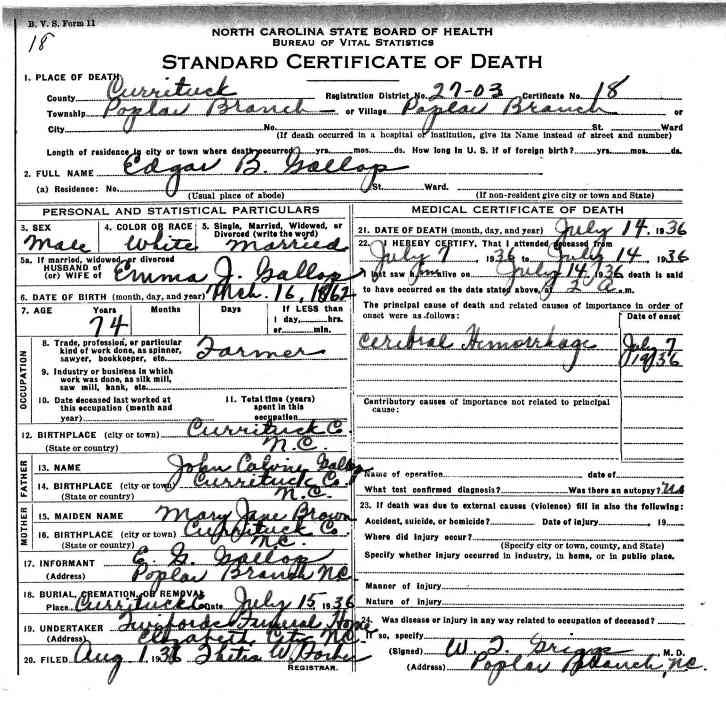 B. V. S. Form 11
18
NORTH CAROLINA STATE BOARD OF HEALTH
BUREAU OF VITAL STATISTICS
STANDARD CERTIFICATE OF DEATH
1. PLACE OF DEATH
County Currituck Registration District No. 27-03 Certificate No. 18
Township Poplar Branch or Village Poplar Branch or
City No. St. Ward
(If death occurred in a hospital or institution, give its Name instead of street and number)
Length of residence in city or town where death occurred yrs. mos. ds. How long in U. S. if of foreign birth? yrs. mos. ds.
2. FULL NAME Edgar B. Gallop
(a) Residence: No. St. Ward.
(Usual place of abode) (If non-resident give city or town and State)
PERSONAL AND STATISTICAL PARTICULARS
3. SEX 4. COLOR OR RACE 5. Single, Married, Widowed, or
Divorced (write the word)
Male White Married
5a. If married, widowed or divorced
HUSBAND of
(or) WIFE of Emma J. Gallop
6. DATE OF BIRTH (month, day, and year) Mch. 16, 1862
7. AGE Years Months Days If LESS than
1 day, hrs.
or min.
74
OCCUPATION
8. Trade, profession, or particular
kind of work done, as spinner,
sawyer, bookkeeper, etc. Farmer
9. Industry or business in which
work was done, as silk mill,
saw mill, bank, etc.
10. Date deceased last worked at
this occupation (month and
year)
11. Total time (years)
spent in this
occupation
12. BIRTHPLACE (city or town) Currituck Co.
(State or country) N.C.
FATHER
13. NAME John Calvin Gallop
14. BIRTHPLACE (city or town) Currituck Co.
(State or country) N.C.
MOTHER
15. MAIDEN NAME Mary Jane Brown
16. BIRTHPLACE (city or town) Currituck Co.
(State or country) N.C.
17. INFORMANT E. G. Gallop
(Address) Poplar Branch N.C.
18. BURIAL, CREMATION, OR REMOVAL
Place Currituck Co Date July 15, 1936
19. UNDERTAKER Twiford's Funeral Home
(Address) Elizabeth City N.C.
20. FILED Aug 1, 1936 W.
REGISTRAR.
MEDICAL CERTIFICATE OF DEATH
21. DATE OF DEATH (month, day, and year) July 14, 1936
22. I HEREBY CERTIFY, That I attended deceased from
July 7, 1936 to July 14, 1936
I last saw him alive on July 14, 1936 death is said
to have occurred on the date stated above, at 2 a. m.
The principal cause of death and related causes of importance in order of
onset were as follows: Date of onset
Cerebral Hemorrhage July 7
1936
Contributory causes of importance not related to principal
cause:
Name of operation date of
What test confirmed diagnosis? Was there an autopsy? No
23. If death was due to external causes (violence) fill in also the following:
Accident, suicide, or homicide? Date of injury , 19
Where did injury occur?
(Specify city or town, county, and State)
Specify whether injury occurred in industry, in home, or in public place.
Manner of injury
Nature of injury
24. Was disease or injury in any way related to occupation of deceased?
If so, specify
(Signed) W. T. Griggs M. D.
(Address) Poplar Branch, N.C.